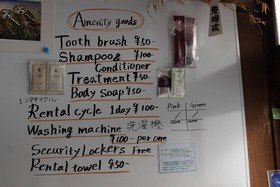 Amenity goods
Tooth brush ¥50-
Shampoo & ¥100-
Conditioner
Treatment ¥50-
Body Soap ¥50-
レンタサイクル
Rental cycle 1day ¥100-
Pink / Green
Washing machine 洗濯機
¥100- per one
Security Lockers Free
Rental towel ¥50-